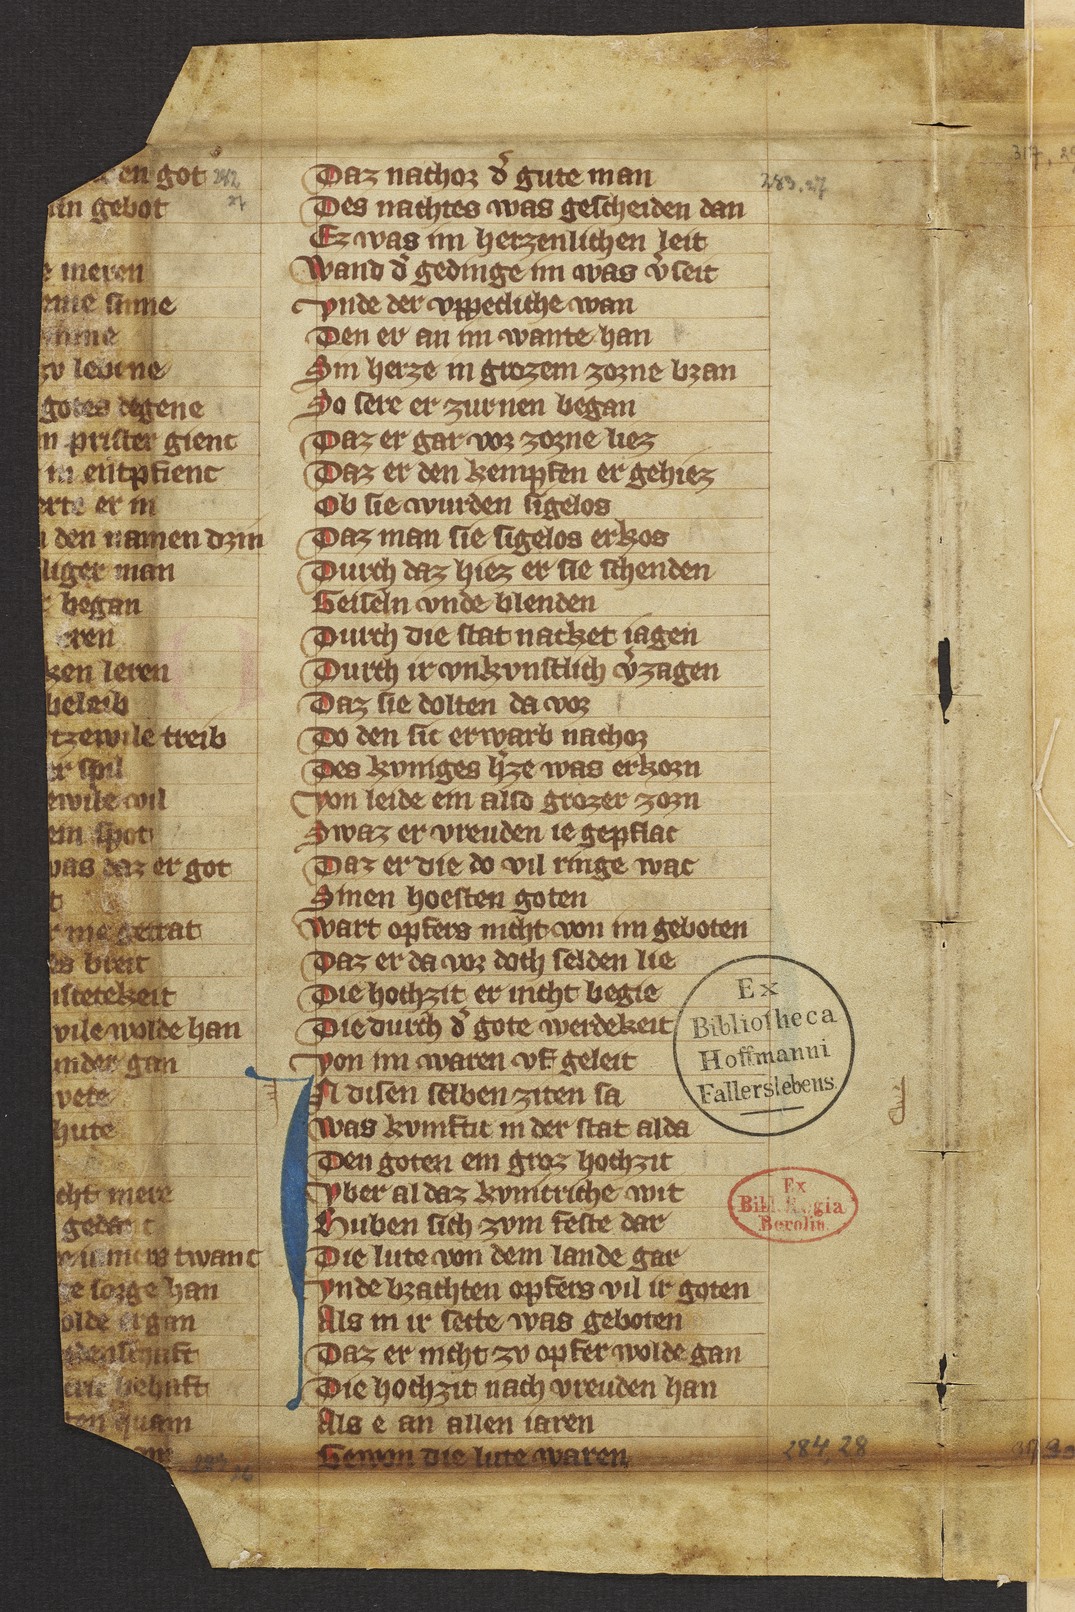 en got 282
in gebot 27
e meren
rnie sinne
inne
zv lebene
gotes degene
n prister gienc
in entpfienc
erte er in
n den namen drin
liger man
r began
eren
ken leren
beleib
tzewile treib
er spil
ewile wil
ein spot
was daz er got
t
r nie getrat
es breit
istetekeit
wile wolde han
inder gan
vete
hute
cht mere
gedacht
twanc
ge sorge han
olde ergan
denschaft
behaft
ten quam
283
26
Daz nachor d̾ gute man 283,27
Des nachtes was gescheiden dan
Ez was im herzenlichen leit
Wand d̾ gedinge im was v̾seit
Vnde der vppecliche wan
Den er an im wante han
Sin herze in grozem zorne bran
So sere er zurnen began
Daz er gar vor zorne liez
Daz er den kempfen er gehiez
Ob sie wurden sigelos
Daz man sie sigelos erkos
Durch daz hiez er sie schenden
Geiseln vnde blenden
Durch die stat nacket iagen
Durch ir vnkvnstlich v̾zagen
Daz sie dolten da vor
Do den sic erwarb nachor
Des kvniges h̾ze was erkorn
Von leide ein also grozer zorn
Swaz er vreuden ie gepflac
Daz er die do vil ringe wac
Sinen hoesten goten
Wart opfers nicht von im geboten
Daz er da vor doch selden lie
Die hochzit er nicht begie
Die durch d̾ gote werdekeit
Von im waren vf geleit
IN disen selben ziten sa
Was kvmftic in der stat alda
Den goten ein groz hochzit
Vber al daz kvnicriche wit
Huben sich zvm feste dar
Die lute von dem lande gar
Vnde brachten opfers vil ir goten
Als in ir sette was geboten
Daz er nicht zv opfer wolde gan
Die hochzit nach vreuden han
Als e an allen iaren
Gewon die lute waren 284,28
Ex
Bibliotheca
Hoffmanni
Fallerslebens
Ex
Bibl. Regia
Berolin.